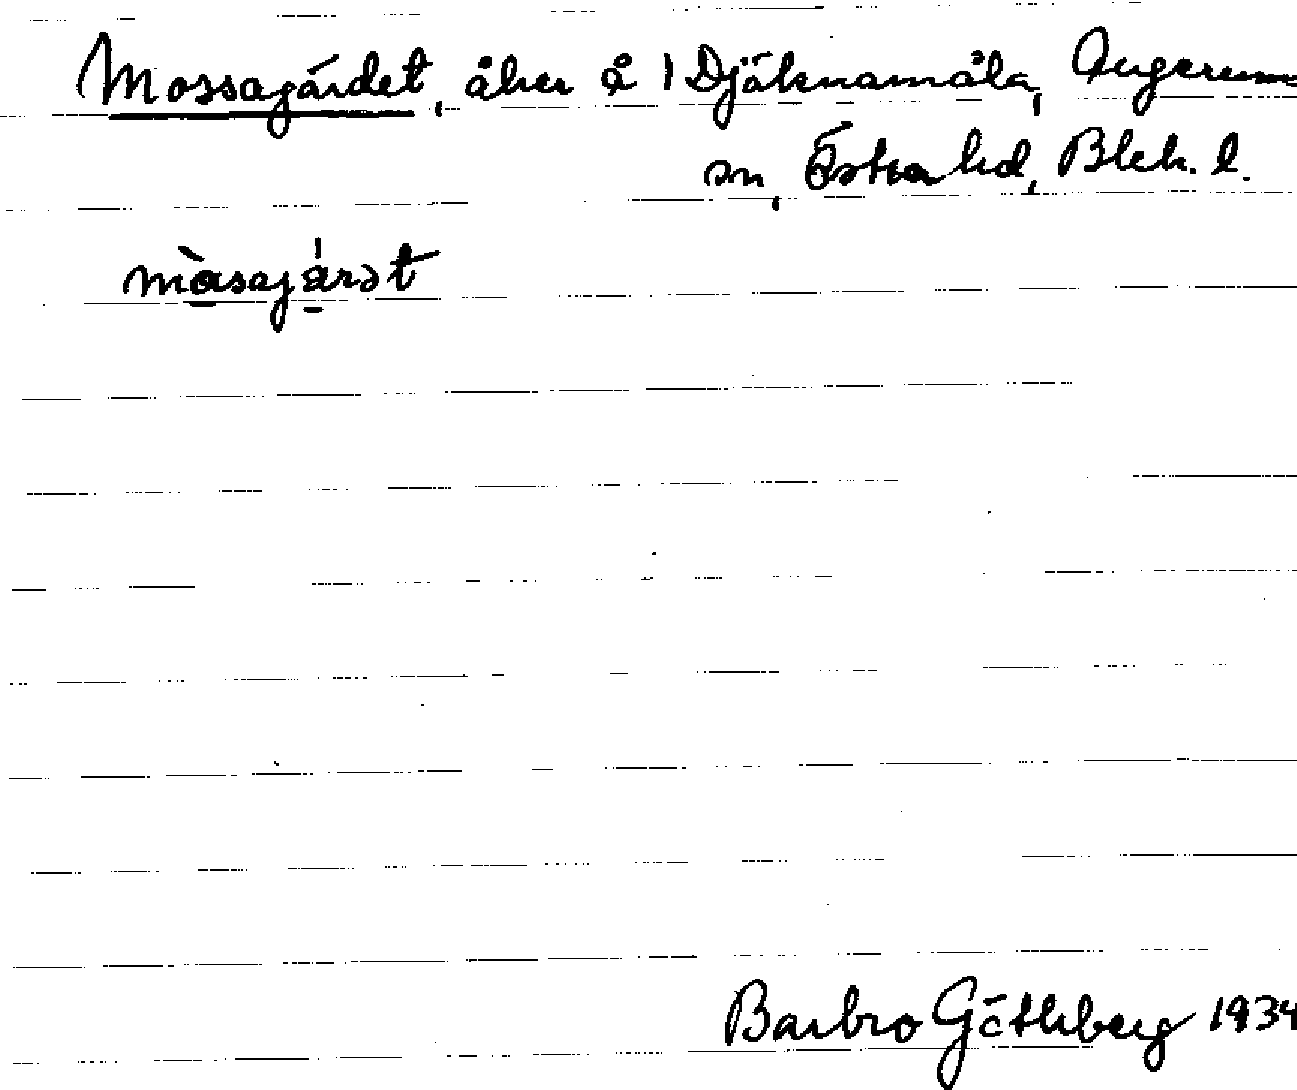 Mossagärdet, åker å 1 Djäknamåla, Augerum
sn, Östra hd, Blek. l.
Barbro Göthberg 1934